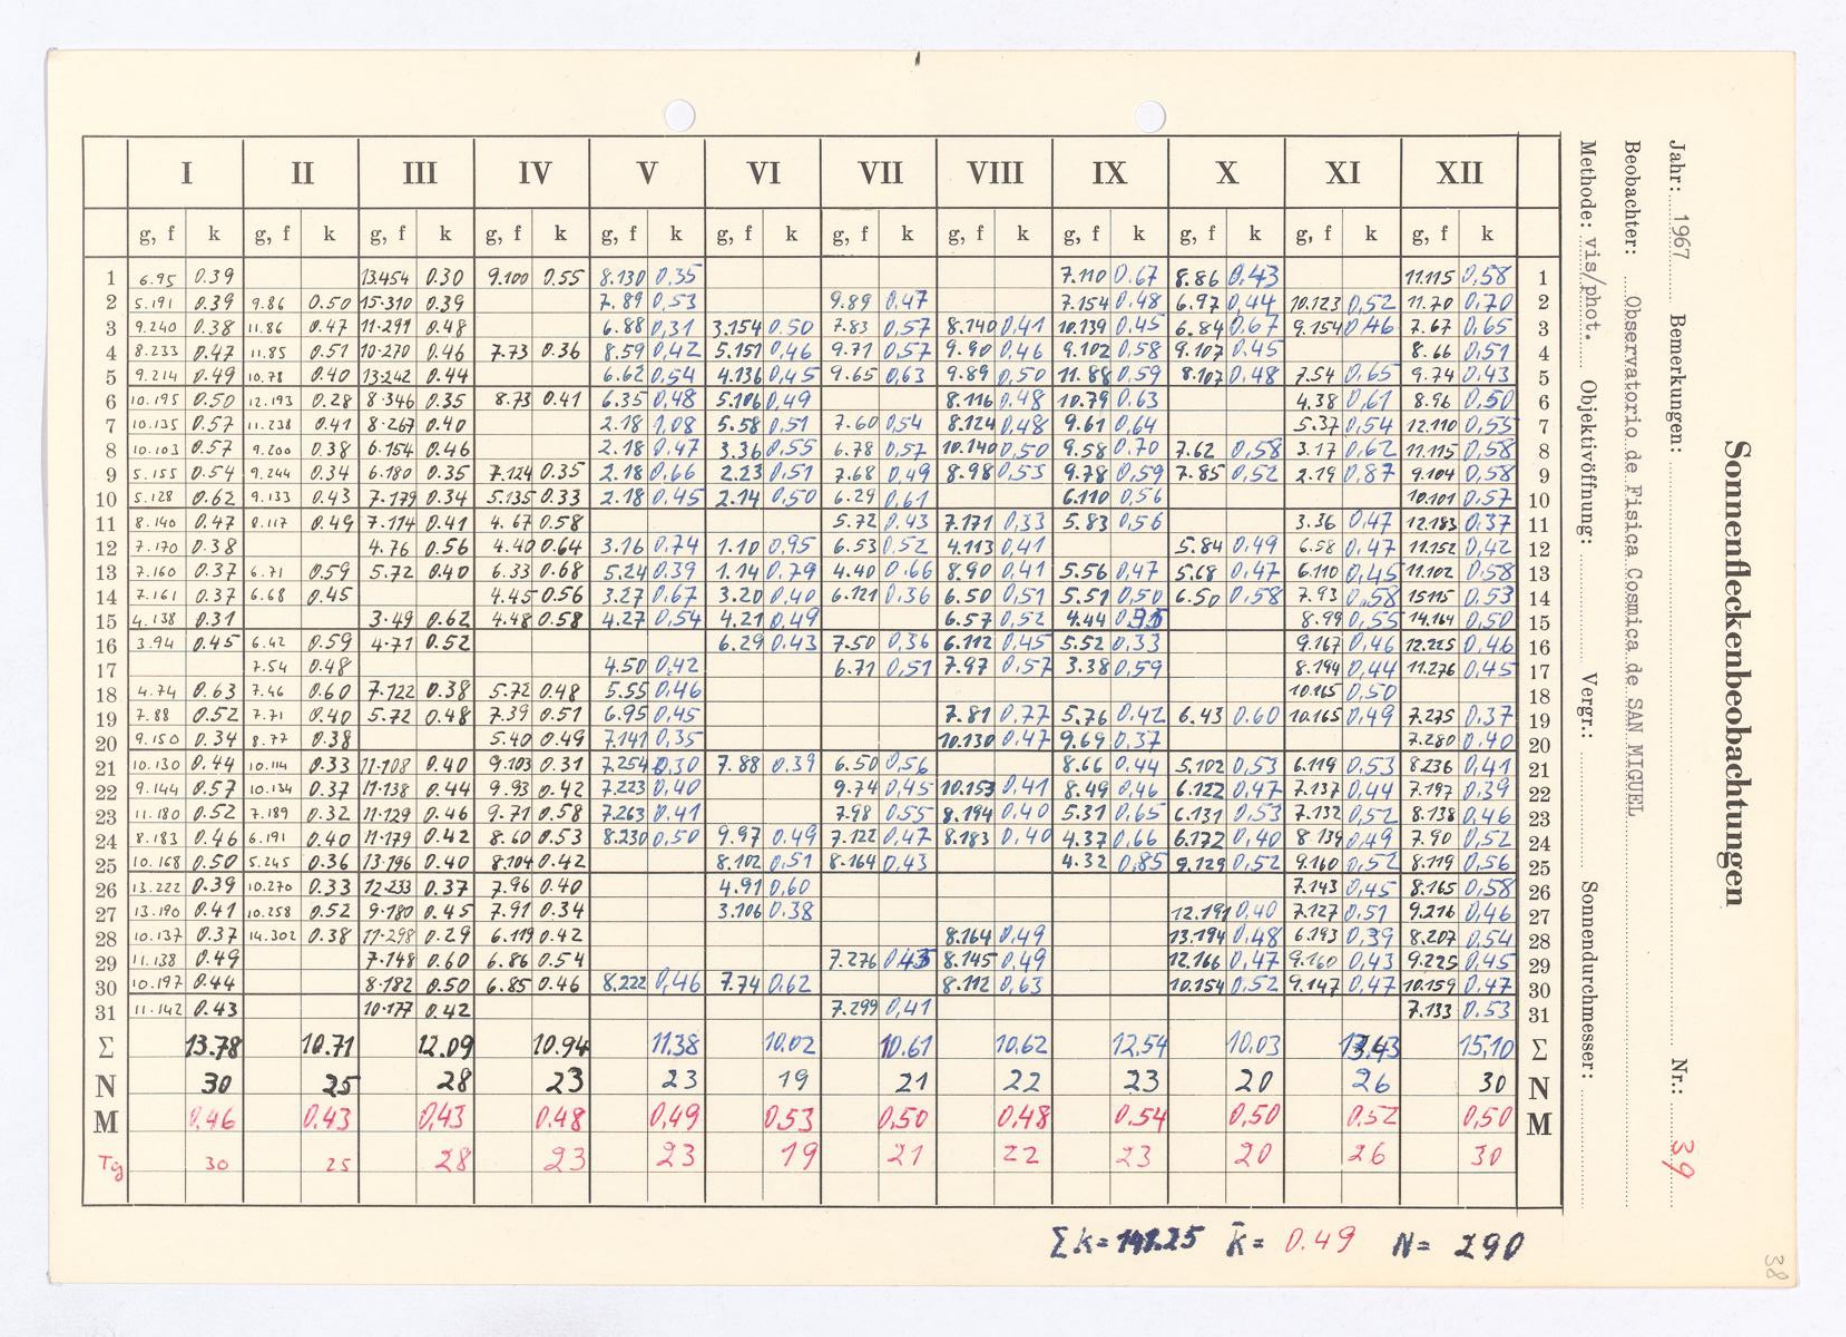 I II III IV V VI VII VIII IX X XI XII
g, f k g, f k g, f k g, f k g, f k g, f k g, f k g, f k g, f k g, f k g, f k g, f k
1 6.95 0.39 13.454 0.30 9.100 0.55 8.130 0,35 7.110 0.67 8.86 0,43 11.115 0,58 1
2 5.191 0.39 9.86 0.50 15.310 0.39 7.89 0,53 9.89 0,47 7.154 0.48 6.97 0,44 10.123 0,52 11.70 0,70 2
3 9.240 0.38 11.86 0.47 11.291 0.48 6.88 0,31 3.154 0.50 7.83 0,57 8.140 0,41 10.139 0.45 6.84 0.67 9.154 0,46 7.67 0,65 3
4 8.233 0.47 11.85 0.51 10.270 0.46 7.73 0.36 8.59 0,42 5.151 0,46 9.71 0,57 9.90 0,46 9.102 0,58 9.107 0.45 8.66 0,51 4
5 9.214 0.49 10.78 0.40 13.242 0.44 6.62 0,54 4.136 0,45 9.65 0,63 9.89 0,50 11.88 0,59 8.107 0,48 7.54 0,65 9.74 0,43 5
6 10.195 0.50 12.193 0.28 8.346 0.35 8.73 0.41 6.35 0,48 5.106 0,49 8.116 0.48 10.79 0.63 4.38 0,61 8.96 0,50 6
7 10.135 0.57 11.238 0.41 8.267 0.40 2.18 1,08 5.58 0,51 7.60 0,54 8.124 0,48 9.61 0,64 5.37 0,54 12.110 0,55 7
8 10.103 0.57 9.200 0.38 6.154 0.46 2.18 0.47 3.36 0,55 6.78 0,57 10.140 0,50 9.58 0.70 7.62 0,58 3.17 0,62 11.115 0,58 8
9 5.155 0.54 9.244 0.34 6.180 0.35 7.124 0.35 2.18 0,66 2.23 0,51 7.68 0,49 8.98 0,53 9.78 0,59 7.85 0,52 2.19 0,87 9.104 0,58 9
10 5.128 0.62 9.133 0.43 7.179 0.34 5.135 0.33 2.18 0.45 2.14 0,50 6.29 0,61 6.110 0,56 10.101 0.57 10
11 8.140 0.47 8.117 0.49 7.114 0.41 4.67 0.58 5.72 0,43 7.171 0,33 5.83 0,56 3.36 0,47 12.183 0.37 11
12 7.170 0.38 4.76 0.56 4.40 0.64 3.16 0,74 1.10 0,95 6.53 0,52 4.113 0,41 5.84 0,49 6.58 0,47 11.152 0,42 12
13 7.160 0.37 6.71 0.59 5.72 0.40 6.33 0.68 5.24 0.39 1.14 0,79 4.40 0.66 8.90 0,41 5.56 0,47 5.68 0,47 6.110 0,45 11.102 0.58 13
14 7.161 0.37 6.68 0.45 4.45 0.56 3.27 0.67 3.20 0,40 6.121 0,36 6.50 0,51 5.51 0,50 6.50 0,58 7.93 0,58 15.115 0.53 14
15 4.138 0.31 3.49 0.62 4.48 0.58 4.27 0,54 4.21 0,49 6.57 0,52 4.44 8.99 0,55 14.164 0,50 15
16 3.94 0.45 6.42 0.59 4.71 0.52 6.29 0.43 7.50 0,36 6.112 0,45 5.52 0,33 9.167 0,46 12.225 0,46 16
17 7.54 0.48 4.50 0,42 6.71 0,51 7.97 0,57 3.38 0,59 8.194 0,44 11.276 0,45 17
18 4.74 0.63 7.46 0.60 7.122 0.38 5.72 0.48 5.55 0,46 10.165 0,50 18
19 7.88 0.52 7.71 0.40 5.72 0.48 7.39 0.51 6.95 0,45 7.81 0.77 5.76 0.42 6.43 0.60 10.165 0,49 7.275 0,37 19
20 9.150 0.34 8.77 0.38 5.40 0.49 7.141 0,35 10.130 0.47 9.69 0,37 7.280 0.40 20
21 10.130 0.44 10.114 0.33 11.108 0.40 9.103 0.31 7.254 0,30 7.88 0,39 6.50 0,56 8.66 0,44 5.102 0,53 6.119 0,53 8.236 0,41 21
22 9.144 0.57 10.134 0.37 11.138 0.44 9.93 0.42 7.223 0,40 9.74 0,45 10.153 0,41 8.49 0,46 6.122 0,47 7.137 0,44 7.197 0,39 22
23 11.180 0.52 7.189 0.32 11.129 0.46 9.71 0.58 7.263 0.41 7.98 0,55 8.194 0,40 5.31 0,65 6.131 0,53 7.132 0,52 8.138 0,46 23
24 8.183 0.46 6.191 0.40 11.179 0.42 8.60 0.53 8.230 0,50 9.97 0,49 7.122 0,47 8.183 0,40 4.37 0,66 6.172 0,40 8.139 0,49 7.90 0,52 24
25 10.168 0.50 5.245 0.36 13.196 0.40 8.104 0.42 8.102 0,51 8.164 0,43 4.32 0,85 9.129 0,52 9.160 0,52 8.119 0,56 25
26 13.222 0.39 10.270 0.33 12.233 0.37 7.96 0.40 4.91 0,60 7.143 0,45 8.165 0,58 26
27 13.190 0.41 10.258 0.52 9.180 0.45 7.91 0.34 3.106 0.38 12.191 0,40 7.127 0,51 9.216 0,46 27
28 10.137 0.37 14.302 0.38 11.298 0.29 6.119 0.42 8.164 0,49 13.194 0,48 6.193 0,39 8.207 0,54 28
29 11.138 0.49 7.148 0.60 6.86 0.54 7.276 0,43 8.145 0,49 12.166 0,47 9.160 0,43 9.225 0,45 29
30 10.197 0.44 8.182 0.50 6.85 0.46 8.222 0,46 7.74 0,62 8.112 0,63 10.154 0,52 9.147 0,47 10.159 0,47 30
31 11.142 0.43 10.177 0.42 7.299 0,41 7.133 0.53 31
Σ 13.78 10.71 12.09 10.94 11.38 10.02 10.61 10,62 12,54 10,03 13,43 15,10 Σ
N 30 25 28 23 23 19 21 22 23 20 26 30 N
M 0,46 0.43 0,43 0.48 0,49 0,53 0,50 0,48 0.54 0,50 0.52 0,50 M
Tg 30 25 28 23 23 19 21 22 23 20 26 30
Σk = 141.25 k̄ = 0.49 N = 290
Sonnenfleckenbeobachtungen
Jahr: 1967 Bemerkungen: Nr.: 39
Beobachter: Observatorio de Fisica Cosmica de SAN MIGUEL
Methode: vis/phot. Objektivöffnung: Vergr.: Sonnendurchmesser:
38